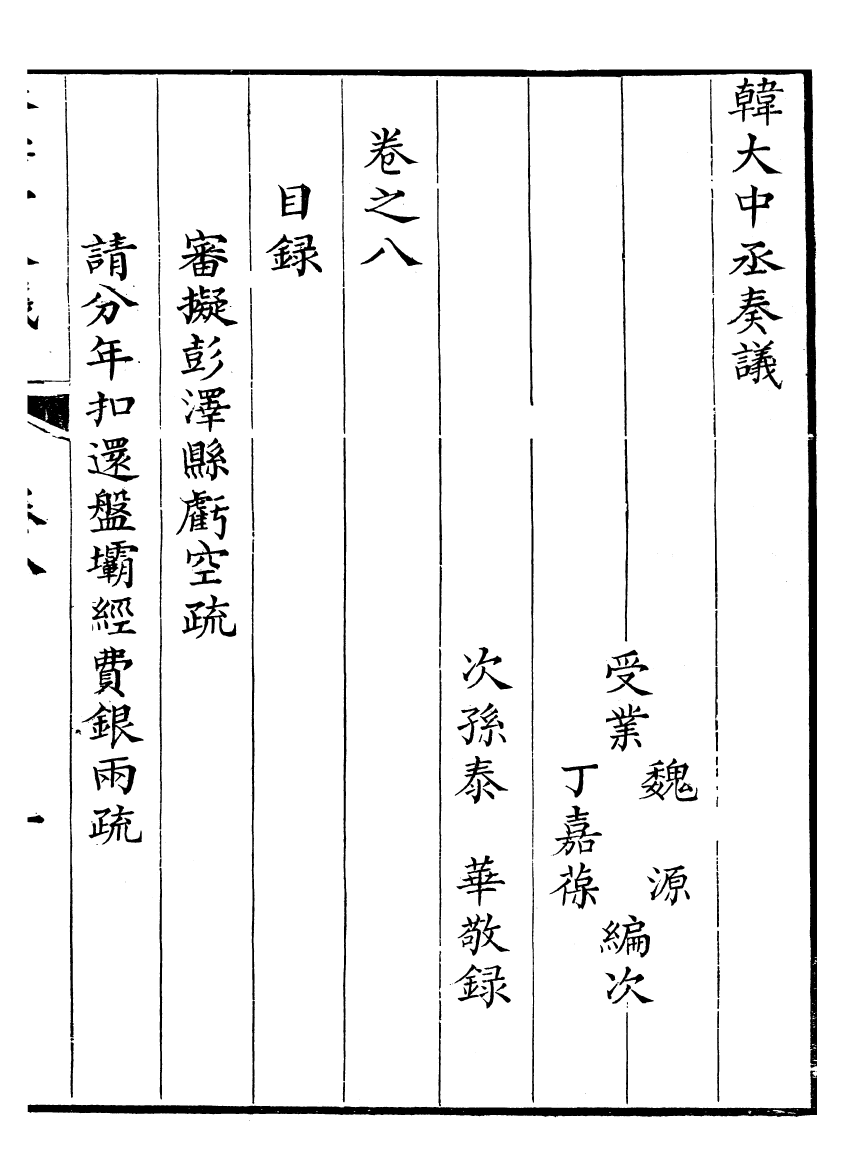 韓大中丞奏議
受業
魏　源
丁嘉葆
編次
次孫泰　華敬録
卷之八
目録
審擬彭澤縣虧空疏
請分年扣還盤壩經費銀兩疏